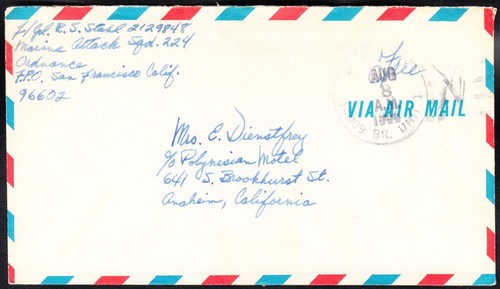 L/Cpl. R.S. Stahl 2129848
Marine Attack Sqd. 224
Ordnance
F.P.O. San Francisco Calif.
96602
Free
AUG
8
A.M.
BR. UNIT
VIA AIR MAIL
Mrs. E. Dienstfrey
c/o Polynesian Motel
641 S. Brookhurst St.
Anaheim, California